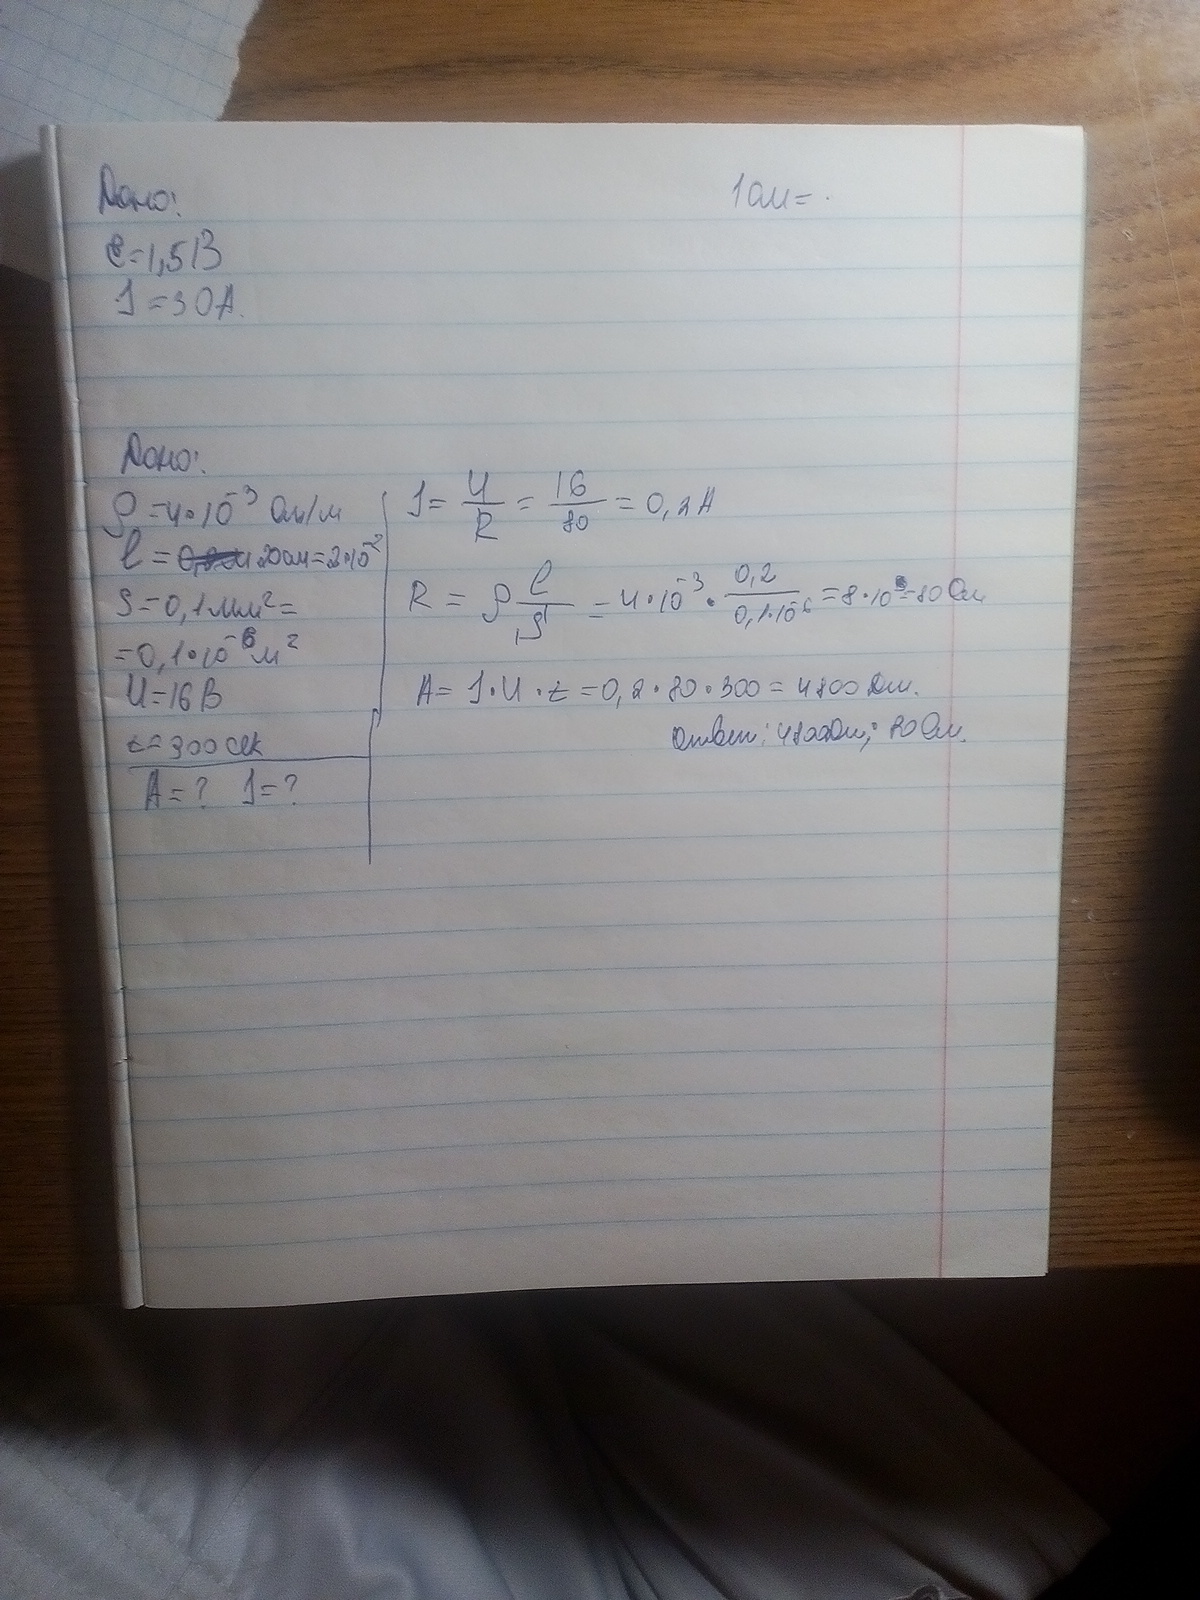 Дано:
1 Ом = .
e=1,5 В
I = 30 А.
Дано:
ρ = 4·10⁻³ Ом/м
l = 20 см = 2·10⁻²
S = 0,1 мм² =
= 0,1·10⁻⁶ м²
U = 16 В
t = 300 сек
A = ? I = ?
I = U/R = 16/80 = 0,2 А
R = ρ l/S = 4·10⁻³ · 0,2/0,1·10⁻⁶ = 8·10³ = 80 Ом
A = I·U·t = 0,2·80·300 = 4800 Дж.
Ответ: 4800 Дж; 80 Ом.